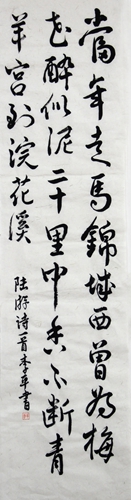 當年走馬錦城西曾為梅
花醉似泥二十里中香不斷青
羊宮到浣花溪
陆游诗一首李平書